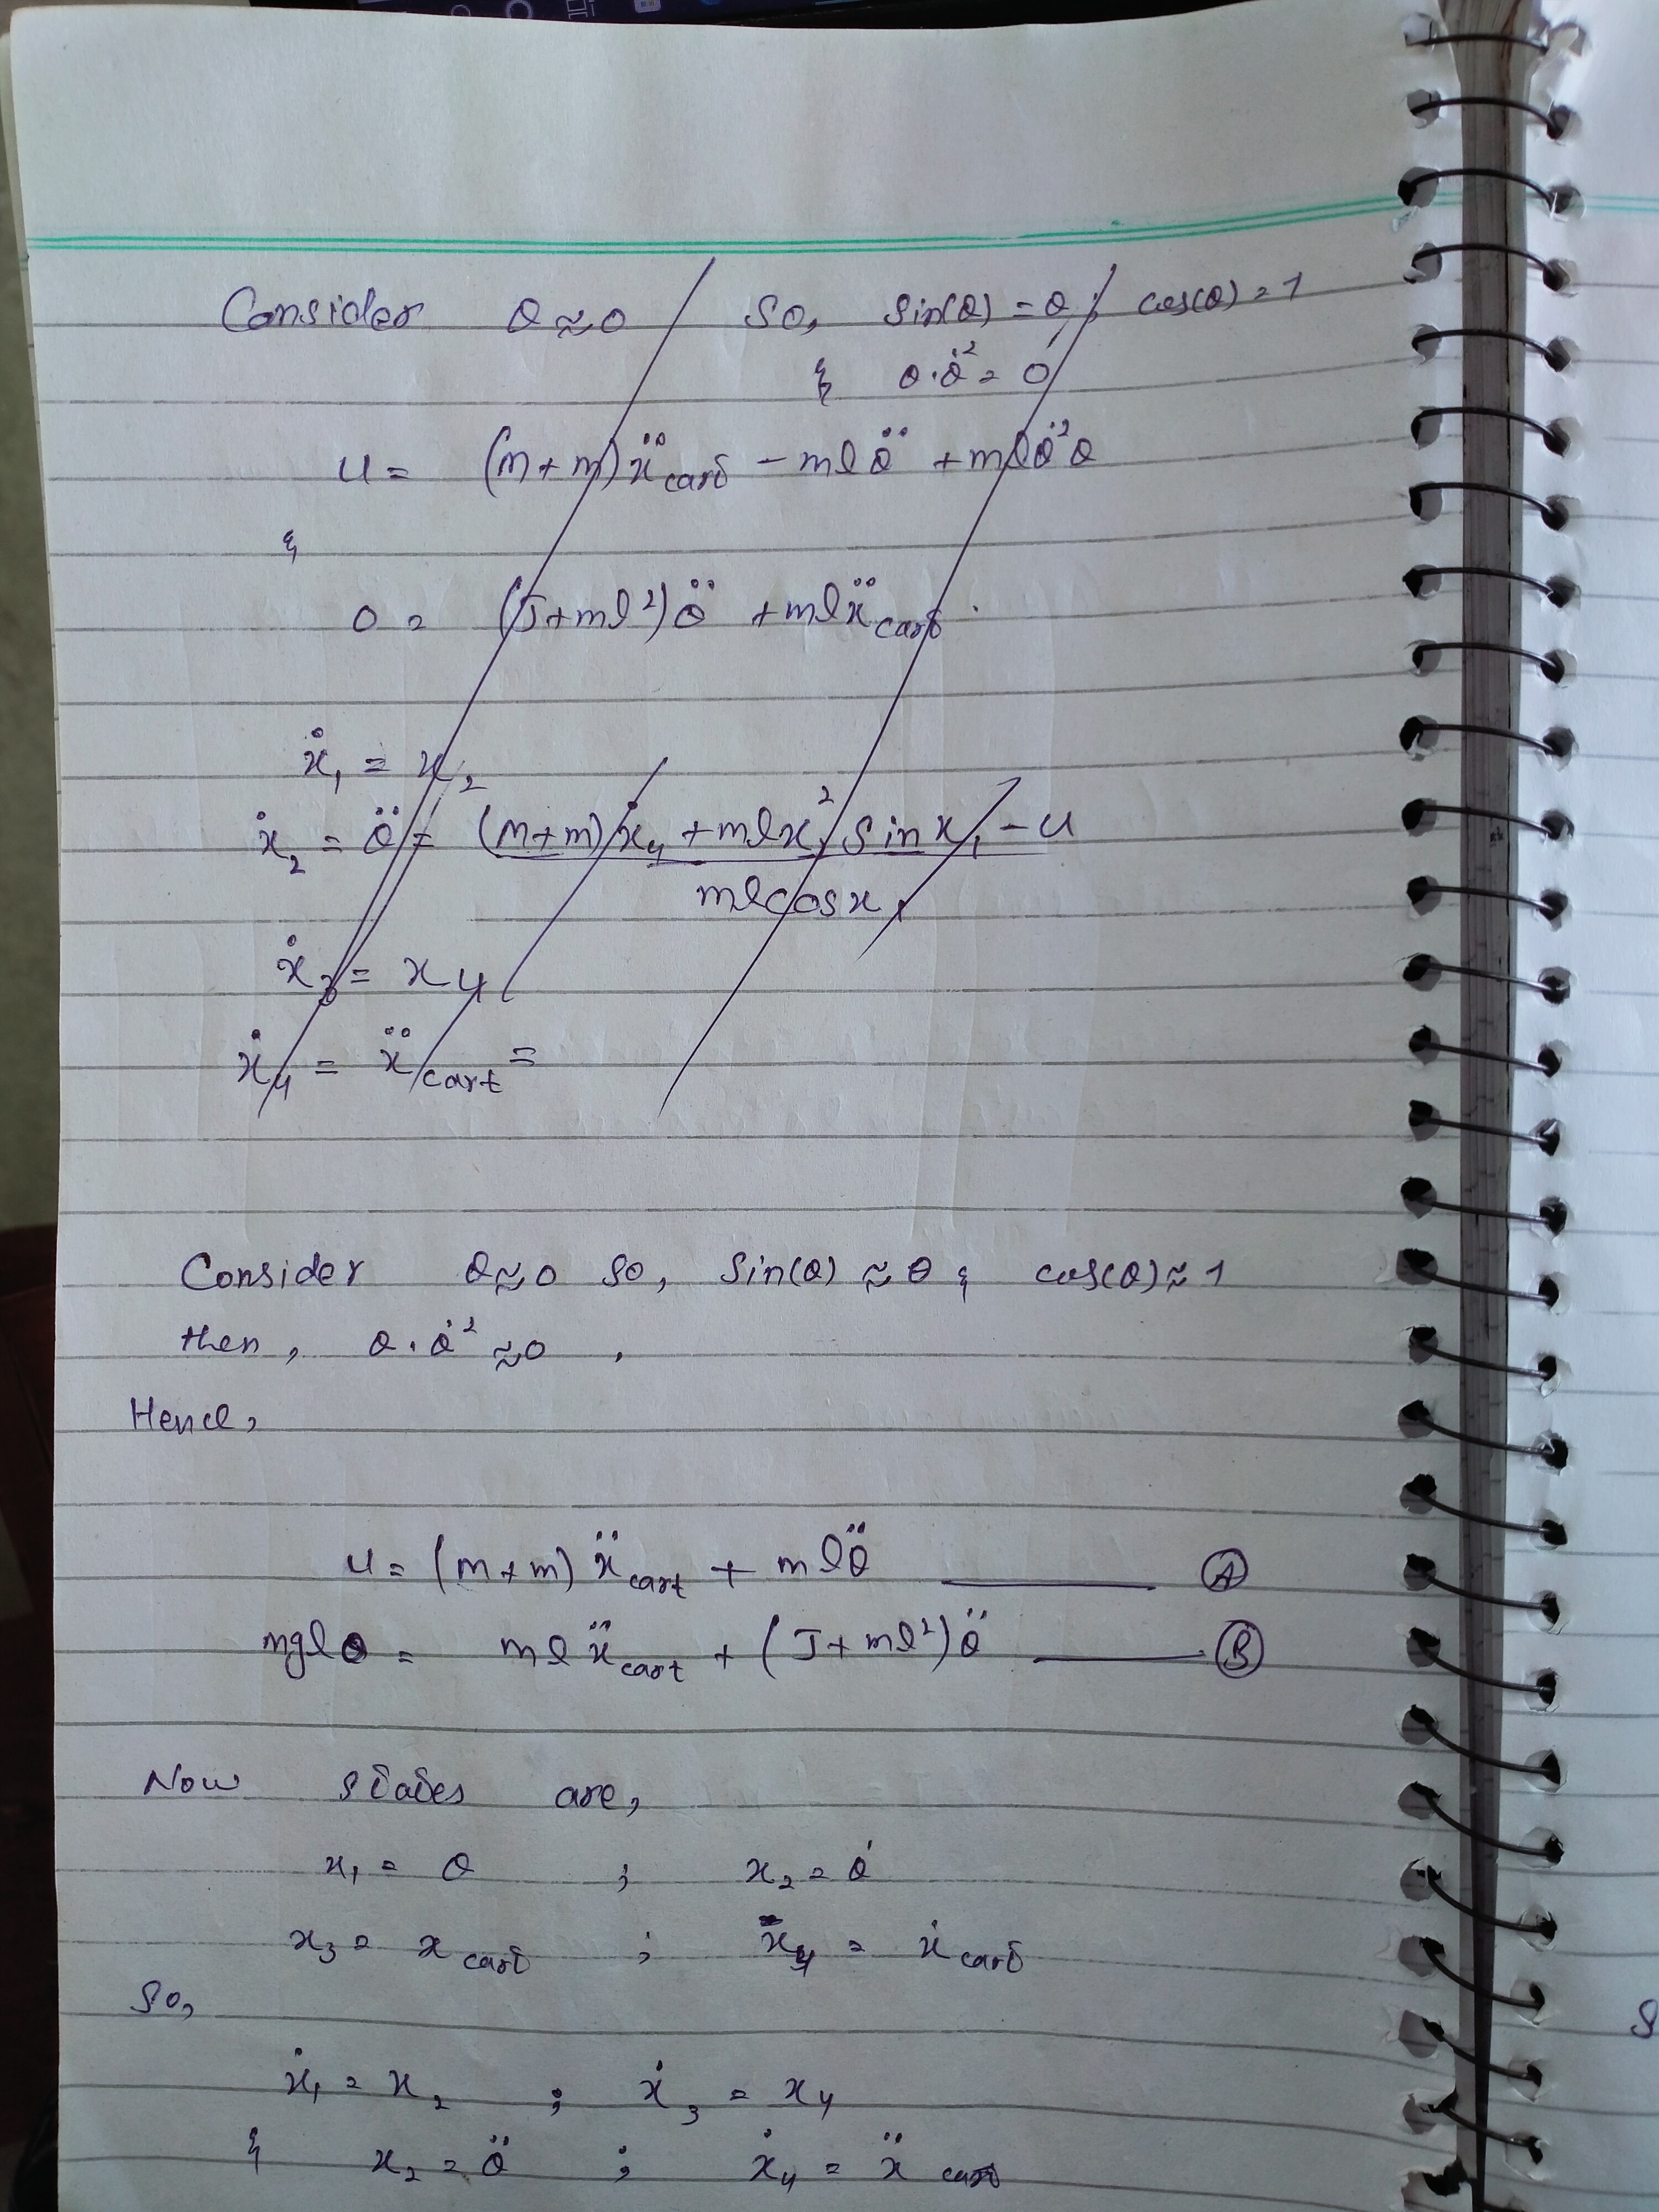 Consider θ≈0 So, Sin(θ) = θ ; cos(θ) = 1
& θ·θ̇² = 0
u = (m+m)ẍcart − mlθ̈ + mlθ̇²θ
&
0 = (J+ml²)θ̈ + mlẍcart .
ẋ₁ = x₂
ẋ₂ = θ̈ = (m+m)ẋ₄ + mlx₂² sinx₁ − u
mlcosx₁
ẋ₃ = x₄
ẋ₄ = ẍcart =
Consider θ≈0 So, Sin(θ) ≈ θ & cos(θ) ≈ 1
then, θ·θ̇² ≈0 ,
Hence,
u = (m+m) ẍcart + mlθ̈ ——— Ⓐ
mglθ = mlẍcart + (J+ml²)θ̈ ——— Ⓑ
Now states are,
x₁ = θ ; x₂ = θ̇
x₃ = xcart ; x₄ = ẋcart
So,
ẋ₁ = x₂ ; ẋ₃ = x₄
& x₂ = θ̈ ; ẋ₄ = ẍcart
S